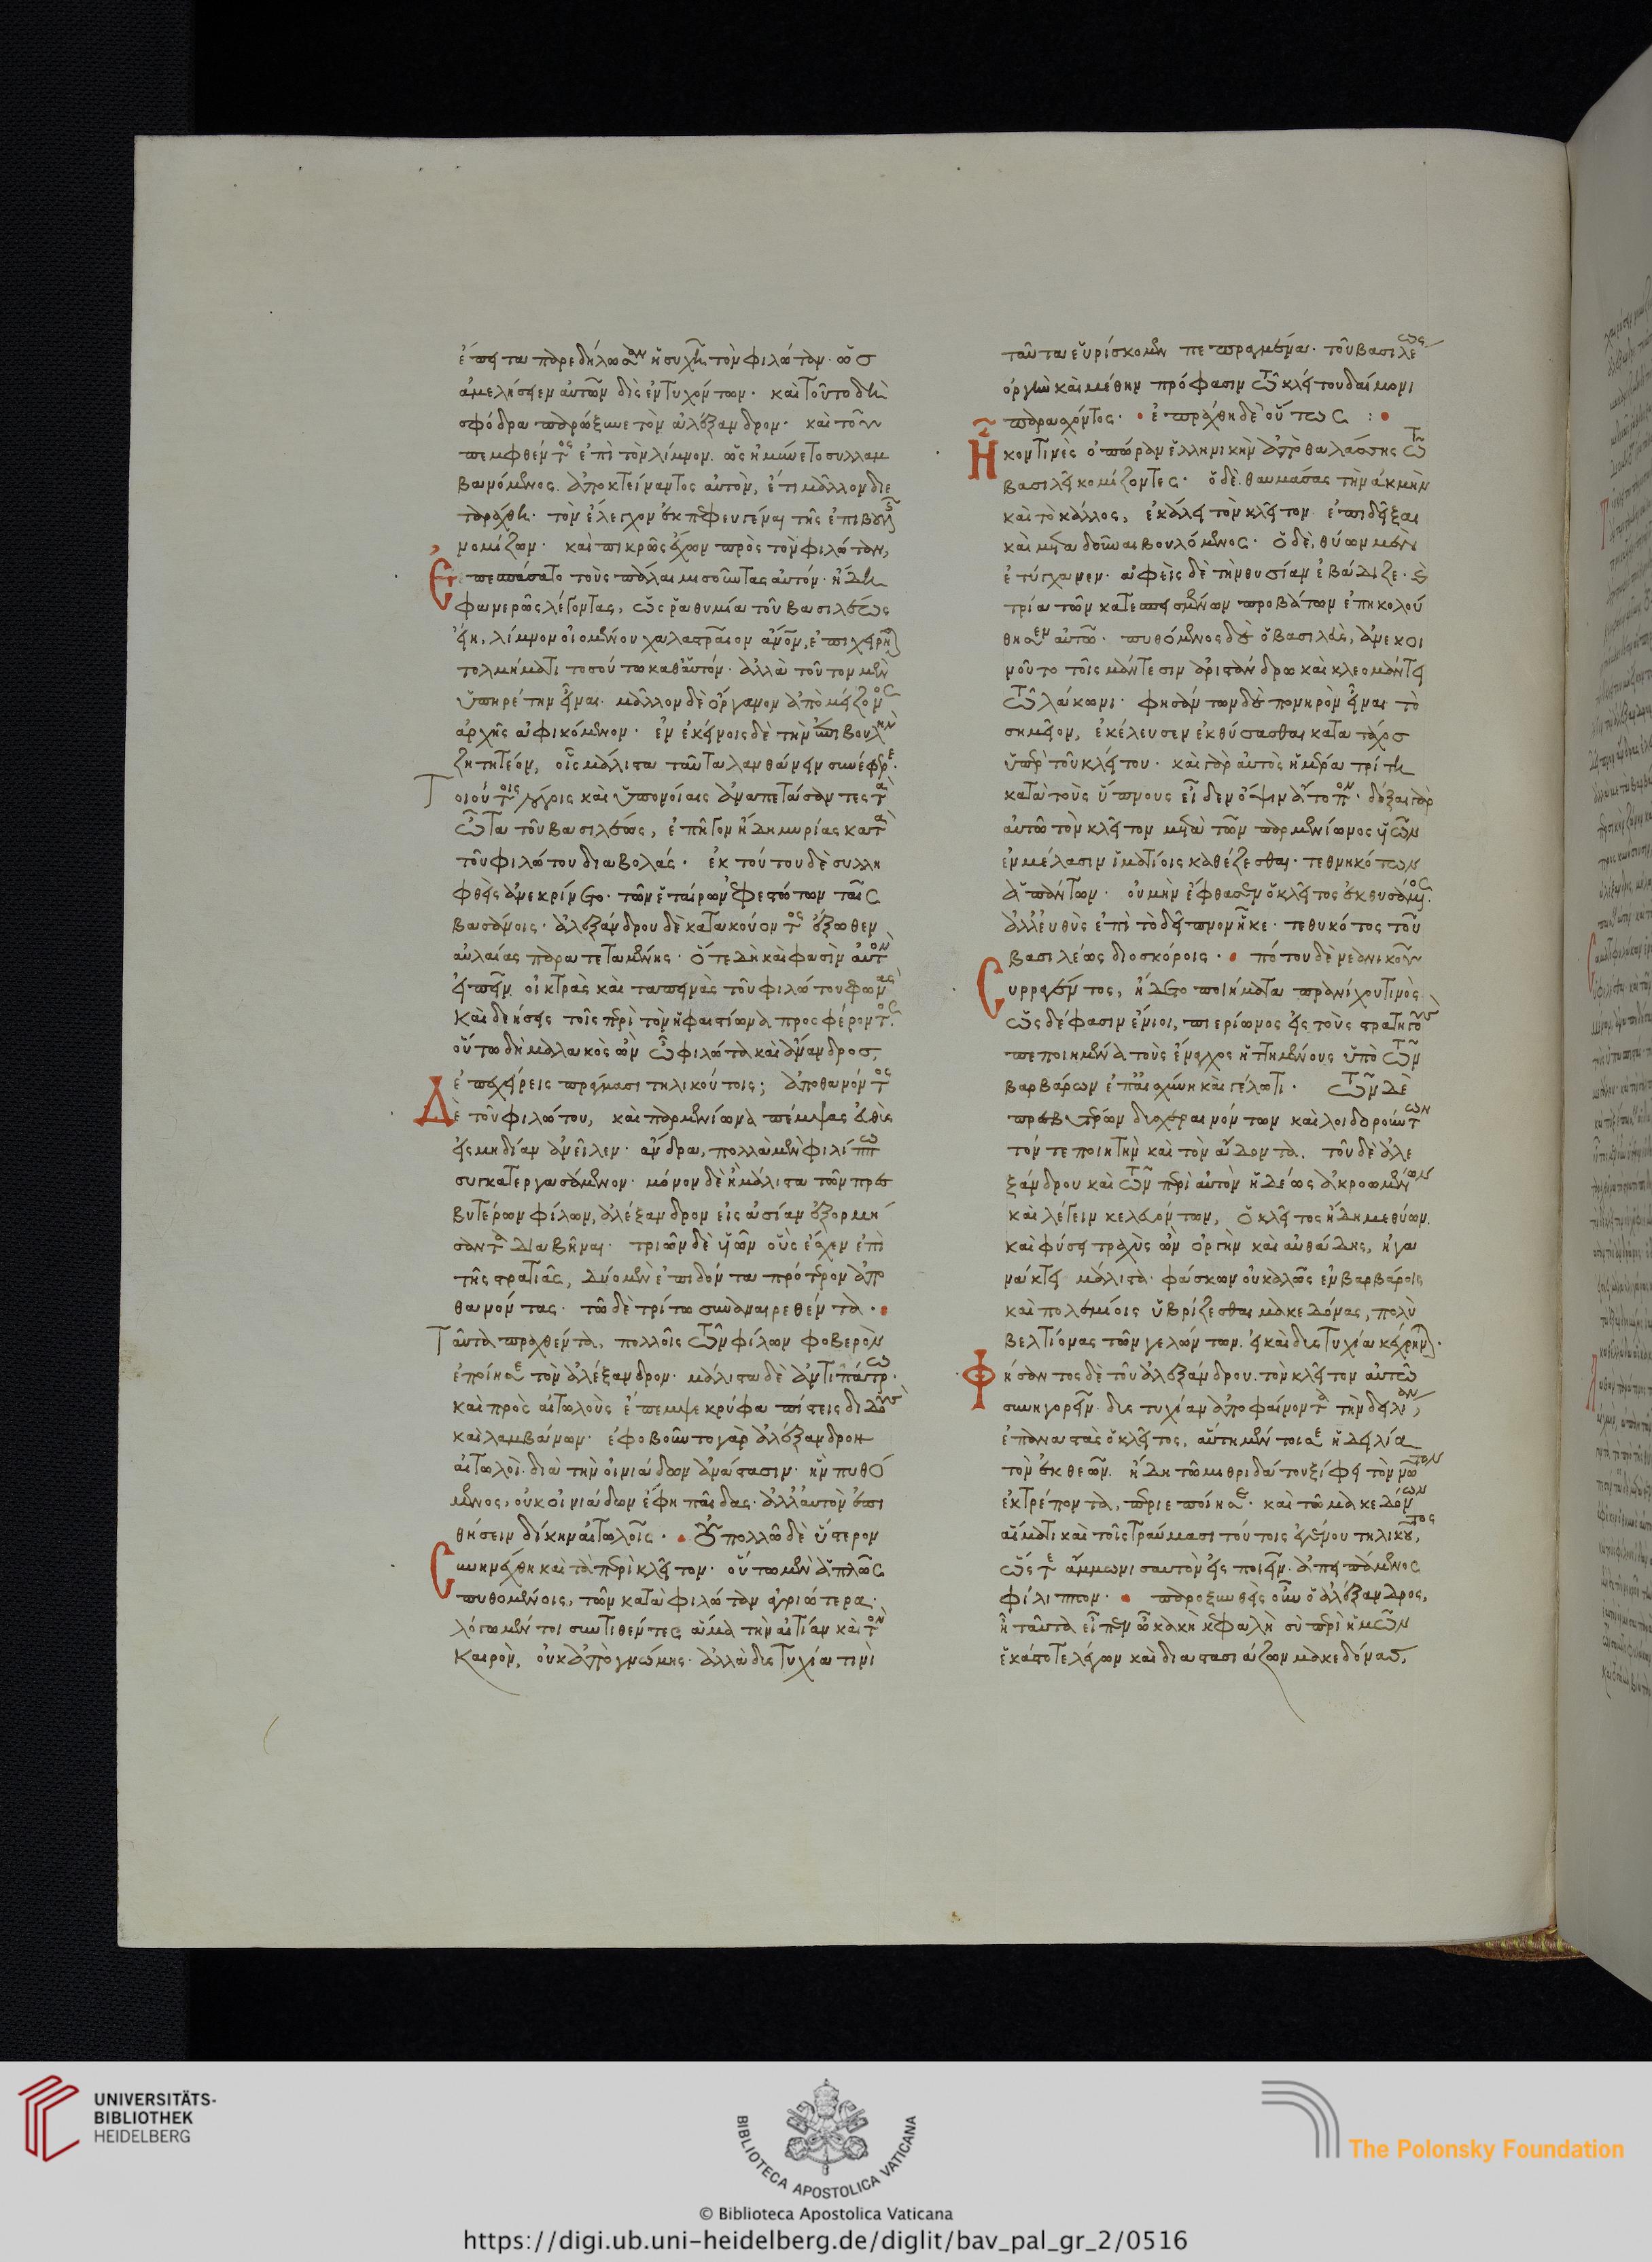 ἔπειτα παρεδήλωσαν ἡσυχῆ τὸν φιλώταν. ὡς
ἀμελήσειεν αὐτῶν δὶς ἐντυχόντων. καὶ τοῦτο δὴ
σφόδρα παρώξυνε τὸν ἀλέξανδρον. καὶ τοῦ
πεμφθέντος ἐπὶ τὸν λίμνον. ὡς ἠμύνετο συλλαμ
βανόμενος. ἀποκτείναντος αὐτὸν, ἔτι μᾶλλον διε
ταράχθη. τὸν ἔλεγχον ἐκπεφευγέναι τῆς ἐπιβουλῆς
νομίζων. καὶ πικρῶς ἔχων πρὸς τὸν φιλώταν,
ἐπεσπάσατο τοὺς πάλαι μισοῦντας αὐτόν. ἤδη
φανερῶς λέγοντας, ὡς ῥαθυμία τοῦ βασιλέως
εἴη, λίμνον οἰομένου χαλαστραῖον ἄνθρωπον, ἐπιχειρῆσαι
τολμήματι τοσούτω καθ' αὑτόν. ἀλλὰ τοῦτον μὲν
ὑπηρέτην εἶναι. μᾶλλον δὲ ὄργανον ἀπὸ μείζονος
ἀρχῆς ἀφικόμενον. ἐν ἐκείνοις δὲ τὴν ἐπιβουλὴν
ζητητέον, οἷς μάλιστα ταῦτα λανθάνειν συνέφερε.
Τοιούτοις λόγοις καὶ ὑπονοίαις ἀναπετάσαντες τὰ
ὦτα τοῦ βασιλέως, ἐπῆγον ἤδη μυρίας κατὰ
τοῦ φιλώτου διαβολάς. ἐκ τούτου δὲ συλλη
φθεὶς ἀνεκρίνετο. τῶν ἑταίρων ἐφεστώτων ταῖς
βασάνοις. ἀλεξάνδρου δὲ κατακούοντος ἔξωθεν
αὐλαίας παρατεταμένης. ὅτε δὴ καὶ φασὶν αὐτὸν
εἰπεῖν. οἰκτρὰς καὶ ταπεινὰς τοῦ φιλώτου φωνὰς
καὶ δεήσεις τοῖς περὶ τὸν ἡφαιστίωνα προσφέροντος.
οὕτω δὴ μαλακὸς ὢν ὦ φιλώτα καὶ ἄνανδρος,
ἐπεχείρεις πράγμασι τηλικούτοις; ἀποθανόντος
Δὲ τοῦ φιλώτου, καὶ παρμενίωνα πέμψας εὐθὺς
εἰς μηδίαν ἀνεῖλεν. ἄνδρα, πολλὰ μὲν φιλίππω
συγκατεργασάμενον. μόνον δὲ ἢ μάλιστα τῶν πρεσ
βυτέρων φίλων, ἀλέξανδρον εἰς ἀσίαν ἐξορμή
σαντα διαβῆναι. τριῶν δὲ υἱῶν οὓς ἔσχεν ἐπὶ
τῆς στρατιᾶς, δύο μὲν ἐπιδόντα πρότερον ἀπο
θανόντας. τῶ δὲ τρίτω συναναιρεθέντα.
Ταῦτα πραχθέντα, πολλοῖς τῶν φίλων φοβερὸν
ἐποίησε τὸν ἀλέξανδρον. μάλιστα δὲ ἀντιπάτρω.
καὶ πρὸς αἰτωλοὺς ἔπεμψε κρύφα πίστεις διδοὺς
καὶ λαμβάνων. ἐφοβοῦντο γὰρ ἀλέξανδρον
αἰτωλοὶ. διὰ τὴν οἰνιάδων ἀνάστασιν. ἣν πυθό
μενος, οὐκ οἰνιάδων ἔφη παῖδας. ἀλλ' αὐτὸν ἐπι
θήσειν δίκην αἰτωλοῖς. Οὐ πολλῶ δὲ ὕστερον
Συνηνέχθη καὶ τὰ περὶ κλεῖτον. οὕτω μὲν ἁπλῶς
πυθομένοις, τῶν κατὰ φιλώταν ἀγριώτερα.
λόγω μέντοι συντιθέντες ἅμα τὴν αἰτίαν καὶ τὸν
καιρὸν, οὐκ ἀπὸ γνώμης. ἀλλὰ δυστυχία τινὶ
ταῦτα εὑρίσκομεν πεπραγμένα. τοῦ βασιλέως
ὀργὴν καὶ μέθην πρόφασιν τῶ κλείτου δαίμονι
παρασχόντος. ἐπράχθη δὲ οὕτως :
Ἧκόν τινὲς ὀπώραν ἑλληνικὴν ἀπὸ θαλάσσης τῶ
βασιλεῖ κομίζοντες. ὁ δὲ. θαυμάσας τὴν ἀκμὴν
καὶ τὸ κάλλος, ἐκάλει τὸν κλεῖτον ἐπιδεῖξαι
καὶ μεταδοῦναι βουλόμενος. ὁ δὲ, θύων μὲν
ἐτύγχανεν. ἀφεὶς δὲ τὴν θυσίαν ἐβάδιζε. καὶ
τρία τῶν κατεσπεισμένων προβάτων ἐπηκολού
θησεν αὐτῶ. πυθόμενος δὲ ὁ βασιλεὺς, ἀνεκοι
νοῦτο τοῖς μάντεσιν ἀριστάνδρω καὶ κλεομάντει
τῶ λάκωνι. φησάντων δὲ πονηρὸν εἶναι τὸ
σημεῖον, ἐκέλευσεν ἐκθύσασθαι κατὰ τάχος
ὑπὲρ τοῦ κλείτου. καὶ γὰρ αὐτὸς ἡμέρα τρίτη
κατὰ τοὺς ὕπνους εἶδεν ὄψιν ἄτοπον. δόξαι γὰρ
αὐτῶ τὸν κλεῖτον μετὰ τῶν παρμενίωνος υἱῶν
ἐν μέλασιν ἱματίοις καθέζεσθαι. τεθνηκότων
ἁπάντων. οὐ μὴν ἔφθασεν ὁ κλεῖτος ἐκθυσάμενος.
ἀλλ' εὐθὺς ἐπὶ τὸ δεῖπνον ἧκε. τεθυκότος τοῦ
βασιλέως διοσκόροις. πότου δὲ νεανικοῦ
Συρραγέντος, ἤδετο ποιήματα πρανίχου τινὸς
ὡς δέ φασιν ἔνιοι, πιερίωνος εἰς τοὺς στρατηγοὺς
πεποιημένα τοὺς ἔναγχος ἡττημένους ὑπὸ τῶν
βαρβάρων ἐπ' αἰσχύνη καὶ γέλωτι. τῶν δὲ
πρεσβυτέρων δυσχεραινόντων καὶ λοιδορούντων
τόν τε ποιητὴν καὶ τὸν ἄδοντα. τοῦ δὲ ἀλε
ξάνδρου καὶ τῶν περὶ αὐτὸν ἡδέως ἀκροωμένων
καὶ λέγειν κελευόντων, ὁ κλεῖτος ἤδη μεθύων.
καὶ φύσει τραχὺς ὢν ὀργὴν καὶ αὐθάδης, ἠγα
νάκτει μάλιστα. φάσκων οὐ καλῶς ἐν βαρβάροις
καὶ πολεμίοις ὑβρίζεσθαι μακεδόνας, πολὺ
βελτίονας τῶν γελώντων. εἰ καὶ δυστυχία κέχρηνται.
Φήσαντος δὲ τοῦ ἀλεξάνδρου. τὸν κλεῖτον αὑτῶ
συνηγορεῖν. δυστυχίαν ἀποφαίνοντα τὴν δειλίαν,
ἐπαναστὰς ὁ κλεῖτος, αὕτη μέντοι σε ἡ δειλία
τὸν ἐκ θεῶν. ἤδη τῶ μιθριδάτου ξίφει τὸν νῶτον
ἐκτρέποντα, περιεποίησε. καὶ τῶ μακεδόνων
αἵματι καὶ τοῖς τραύμασι τούτοις ἐγένου τηλικοῦτος,
ὥστε ἄμμωνι σαυτὸν εἰσποιεῖν. ἀπειπάμενος
φίλιππον. παροξυνθεὶς οὖν ὁ ἀλέξανδρος,
ἦ ταῦτα εἶπεν ὦ κακὴ κεφαλὴ σὺ περὶ ἡμῶν
ἑκάστοτε λέγων καὶ διαστασιάζων μακεδόνας,
UNIVERSITÄTS-
BIBLIOTHEK
HEIDELBERG
BIBLIOTECA APOSTOLICA VATICANA
The Polonsky Foundation
© Biblioteca Apostolica Vaticana
https://digi.ub.uni-heidelberg.de/diglit/bav_pal_gr_2/0516